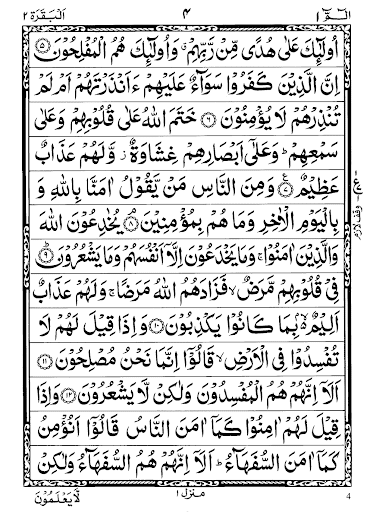 الٓمّٓ ١ ٤ اَلْبَقَرَة ٢
اُولٰٓئِكَ عَلٰى هُدًى مِّنْ رَّبِّهِمْ ۗ وَاُولٰٓئِكَ هُمُ الْمُفْلِحُوْنَ ۝٥
اِنَّ الَّذِيْنَ كَفَرُوْا سَوَآءٌ عَلَيْهِمْ ءَاَنْذَرْتَهُمْ اَمْ لَمْ
تُنْذِرْهُمْ لَا يُؤْمِنُوْنَ ۝٦ خَتَمَ اللهُ عَلٰى قُلُوْبِهِمْ وَعَلٰى
سَمْعِهِمْ ؕ وَعَلٰٓى اَبْصَارِهِمْ غِشَاوَةٌ ؗ وَّلَهُمْ عَذَابٌ
عَظِيْمٌ ۝٧ وَمِنَ النَّاسِ مَنْ يَّقُوْلُ اٰمَنَّا بِاللهِ وَ
بِالْيَوْمِ الْاٰخِرِ وَمَا هُمْ بِمُؤْمِنِيْنَ ۝٨ يُخٰدِعُوْنَ اللهَ
وَالَّذِيْنَ اٰمَنُوْا ۚ وَمَا يَخْدَعُوْنَ اِلَّآ اَنْفُسَهُمْ وَمَا يَشْعُرُوْنَ ۝٩
فِيْ قُلُوْبِهِمْ مَّرَضٌ ۙ فَزَادَهُمُ اللهُ مَرَضًا ۚ وَلَهُمْ عَذَابٌ
اَلِيْمٌ ۢ ۙ بِمَا كَانُوْا يَكْذِبُوْنَ ۝١٠ وَاِذَا قِيْلَ لَهُمْ لَا
تُفْسِدُوْا فِي الْاَرْضِ ۙ قَالُوْٓا اِنَّمَا نَحْنُ مُصْلِحُوْنَ ۝١١
اَلَآ اِنَّهُمْ هُمُ الْمُفْسِدُوْنَ وَلٰكِنْ لَّا يَشْعُرُوْنَ ۝١٢ وَاِذَا
قِيْلَ لَهُمْ اٰمِنُوْا كَمَآ اٰمَنَ النَّاسُ قَالُوْٓا اَنُؤْمِنُ
كَمَآ اٰمَنَ السُّفَهَآءُ ؕ اَلَآ اِنَّهُمْ هُمُ السُّفَهَآءُ وَلٰكِنْ
وقف لازم
لَّا يَعْلَمُوْنَ منزل ١ 4